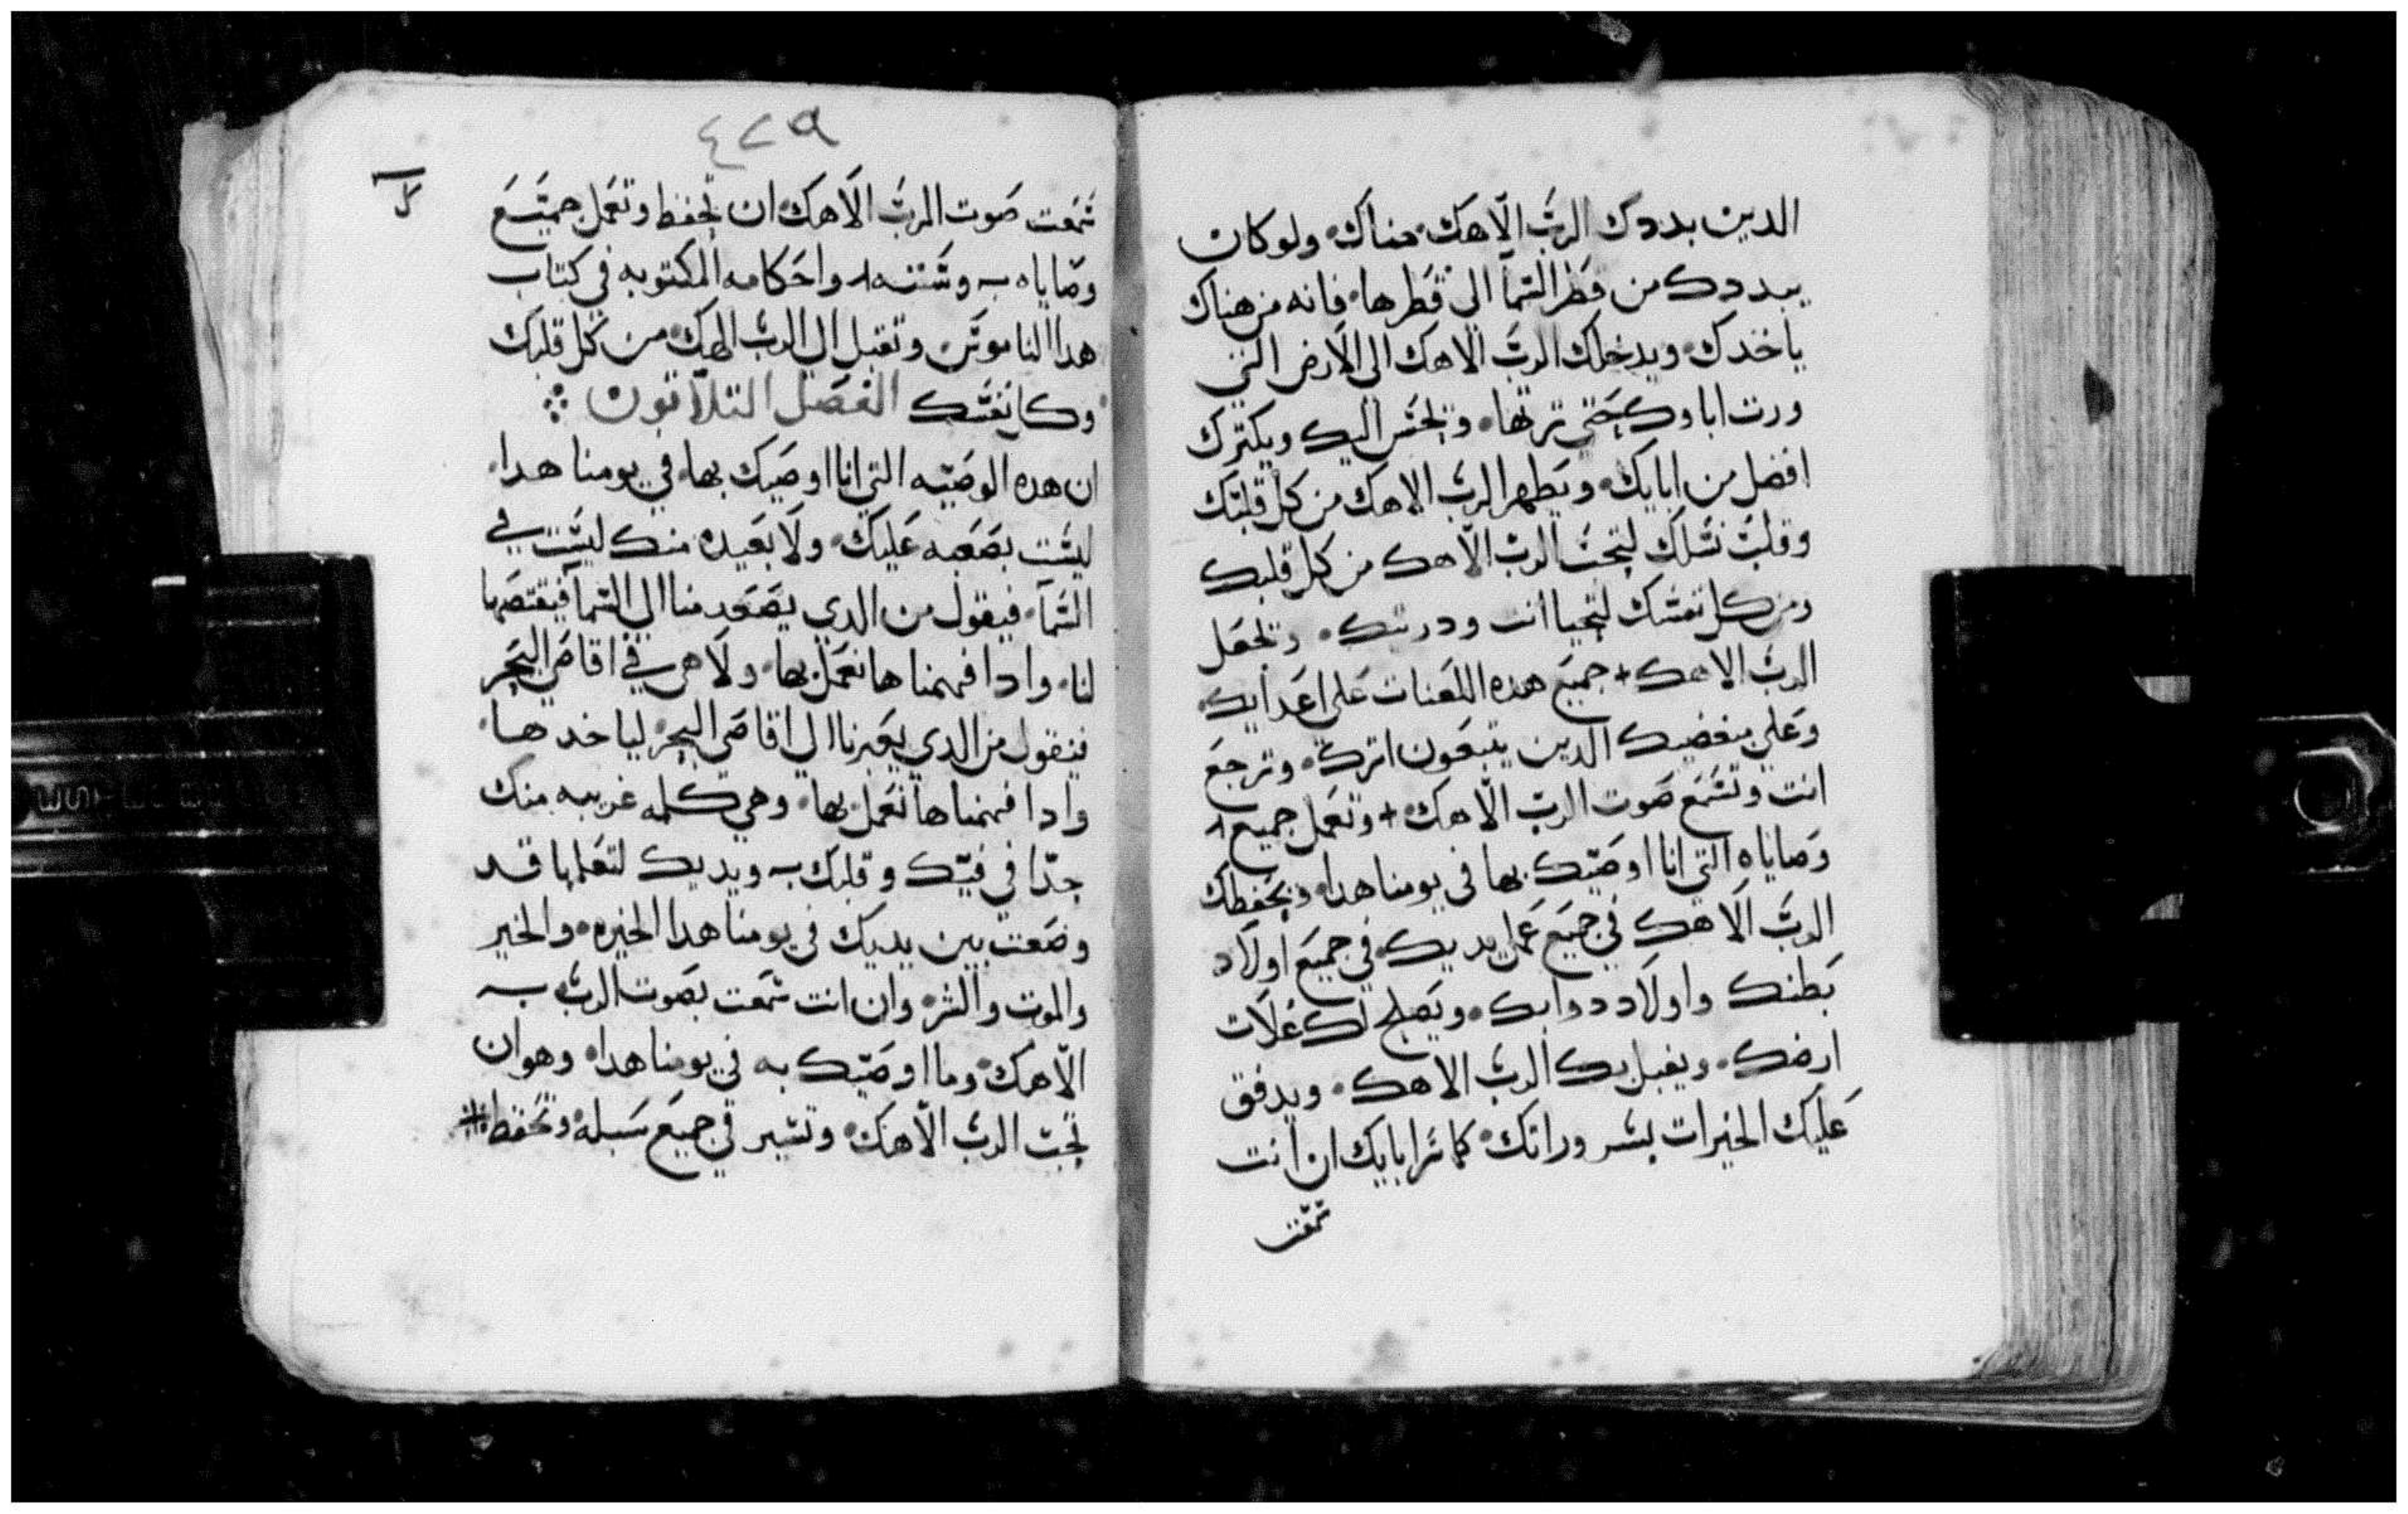 الدين بددك الربّ الاهك هناك ولوكان
يبددك من قطر السمآ الي قطرها فانه من هناك
ياخدك ويدخلك الربّ الاهك الي الارض التي
ورت اباوك حتي ترتها ويحسن اليك ويكترك
افضل من ابايك ويطهر الرب الاهك من كل قلبك
وقلب نسلك لتحب الرب الاهك من كل قلبك
ومن كل نفسك لتحيا انت ودريتك ويجعل
الرب الاهك جميع هده اللعنات علي اعدايك
وعلي مبغضيك الدين يتبعون اترك وترجع
انت وتسمع صوت الربّ الاهك وتعمل جميع
وصاياه التي انا اوصيك بها في يومنا هدا ويحفظك
الربّ الاهك في جميع عمل يديك في جميع اولاد
بطنك واولاد دوابك ويصلح لك غلات
ارضك ويقبل بك الرب الاهك ويدفق
عليك الخيرات بسرورانك كما سرابايك ان انت
سمعت
٤٢٩
ل
سمعت صوت الربّ الاهك ان تحفظ وتعمل جميع
وصاياه وسننه واحكامه المكتوبه في كتاب
هدا الناموس وتقبل الي الرب الهك من كل قلبك
وكل نفسك الفصل التلاتون
ان هده الوصيّه التي انا اوصيك بها في يومنا هدا
ليست بصعبه عليك ولا بعيده منك ليست في
السمآ فيقول من الدي يصعد منا الي السمآ فيقتصها
لنا وادا فهمناها نعمل بها ولا هي في اقاصي البحر
فيقول من الدي يعبرنا الي اقاصي البحر لياخدها
وادا فهمناها نعمل بها وهي كلمه غريبه منك
جدّا في فيّك وقلبك ويديك لتعملها قد
وضعت بين يديك في يومنا هدا الخيره والخير
والموت والشر وان انت سمعت بصوت الرب
الاهك وما اوصيّك به في يومنا هدا وهو ان
تحب الرب الاهك وتسير في جميع سبله وتحفظ